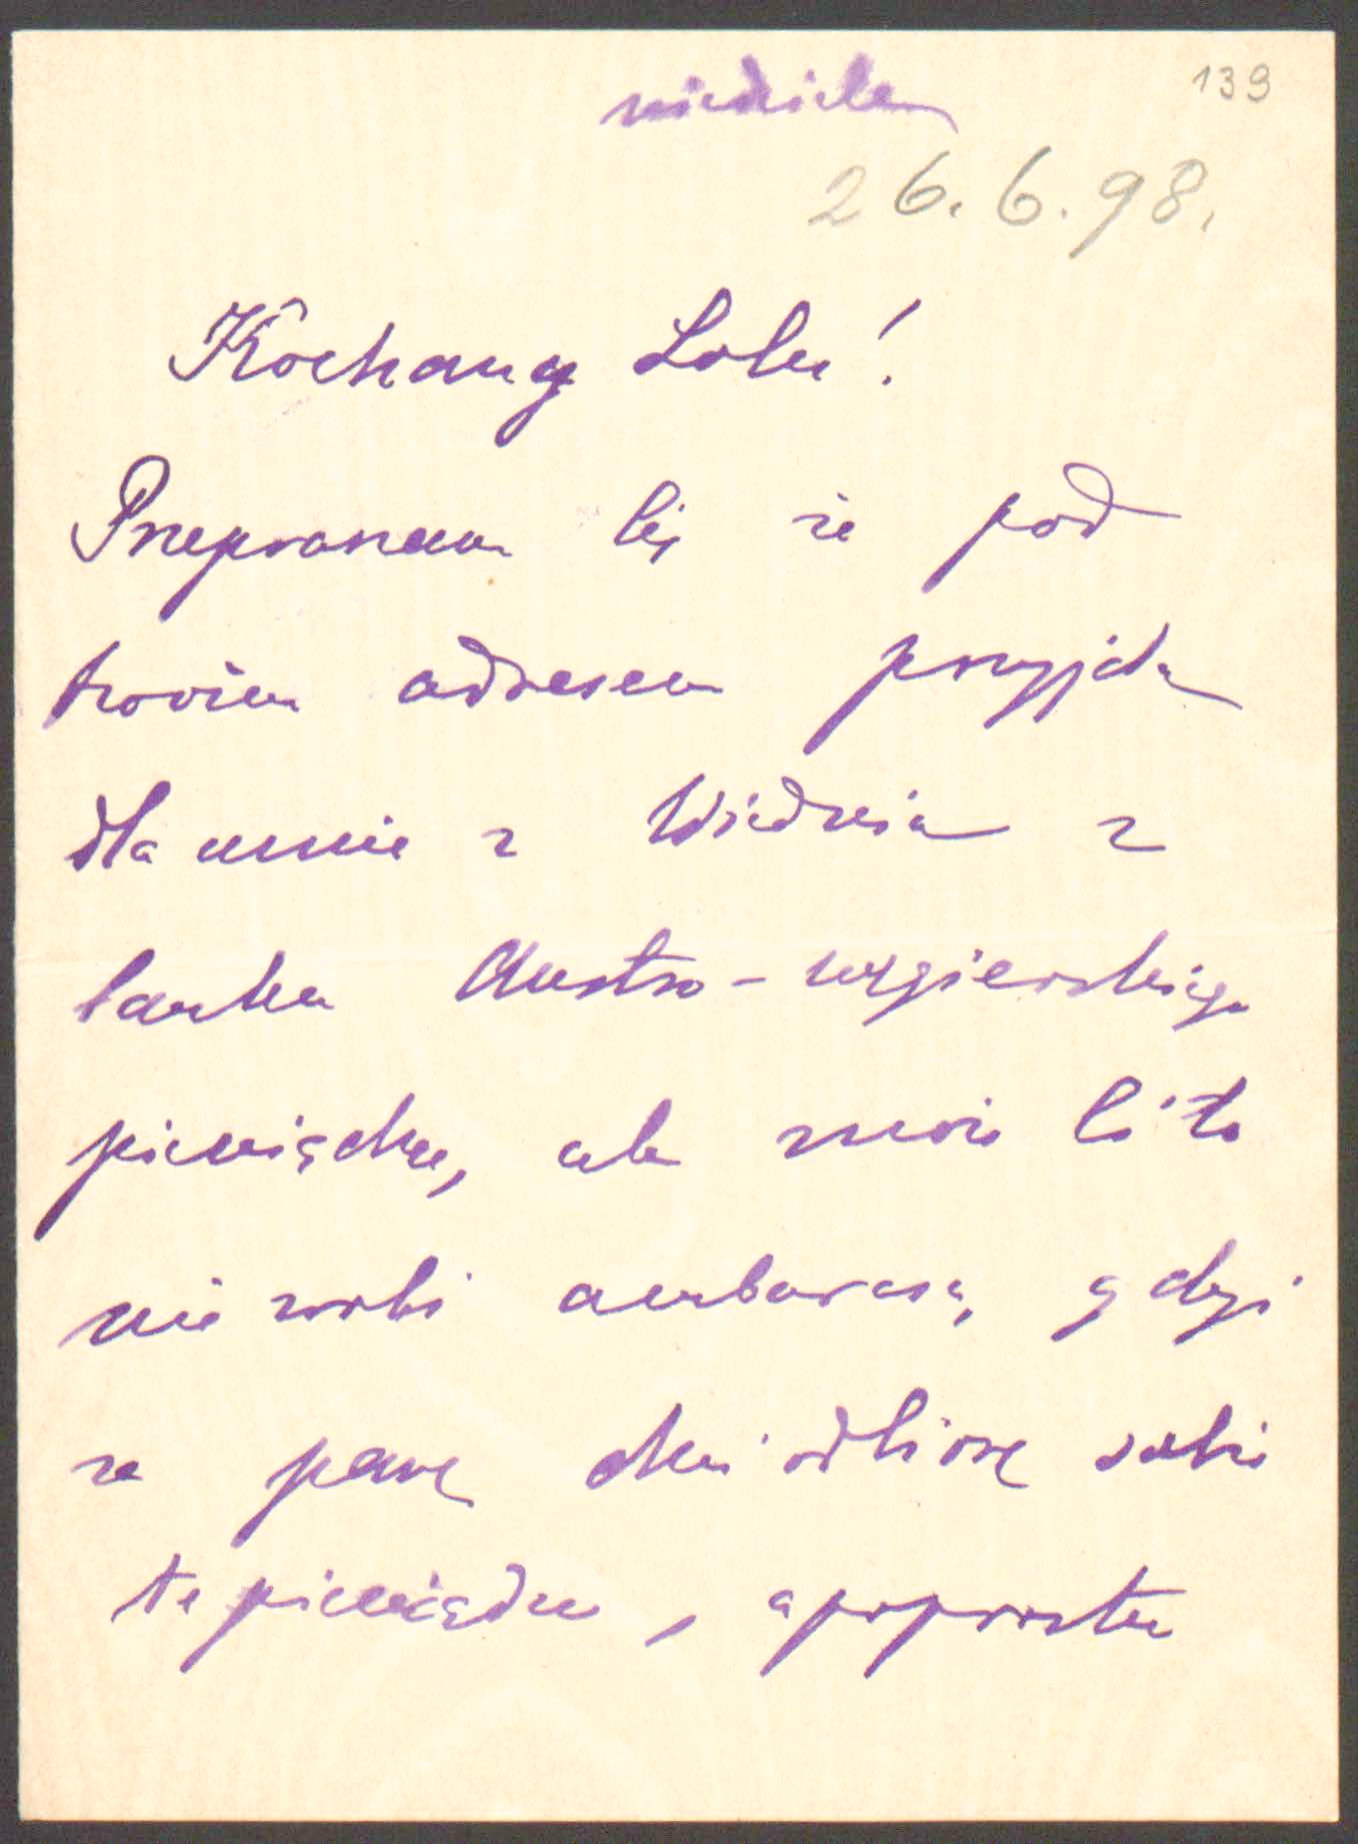 niedziela
139
26.6.98.
Kochany Lolu!
Przepraszam Cię że pod
twoim adresem przyjdą
dla mnie z Wiednia z
banku Austro-węgierskiego
pieniądze, ale może Ci to
nie zrobi ambarasu, gdyż
za parę dni odbiorę sobie
te pieniądze, a poprostu